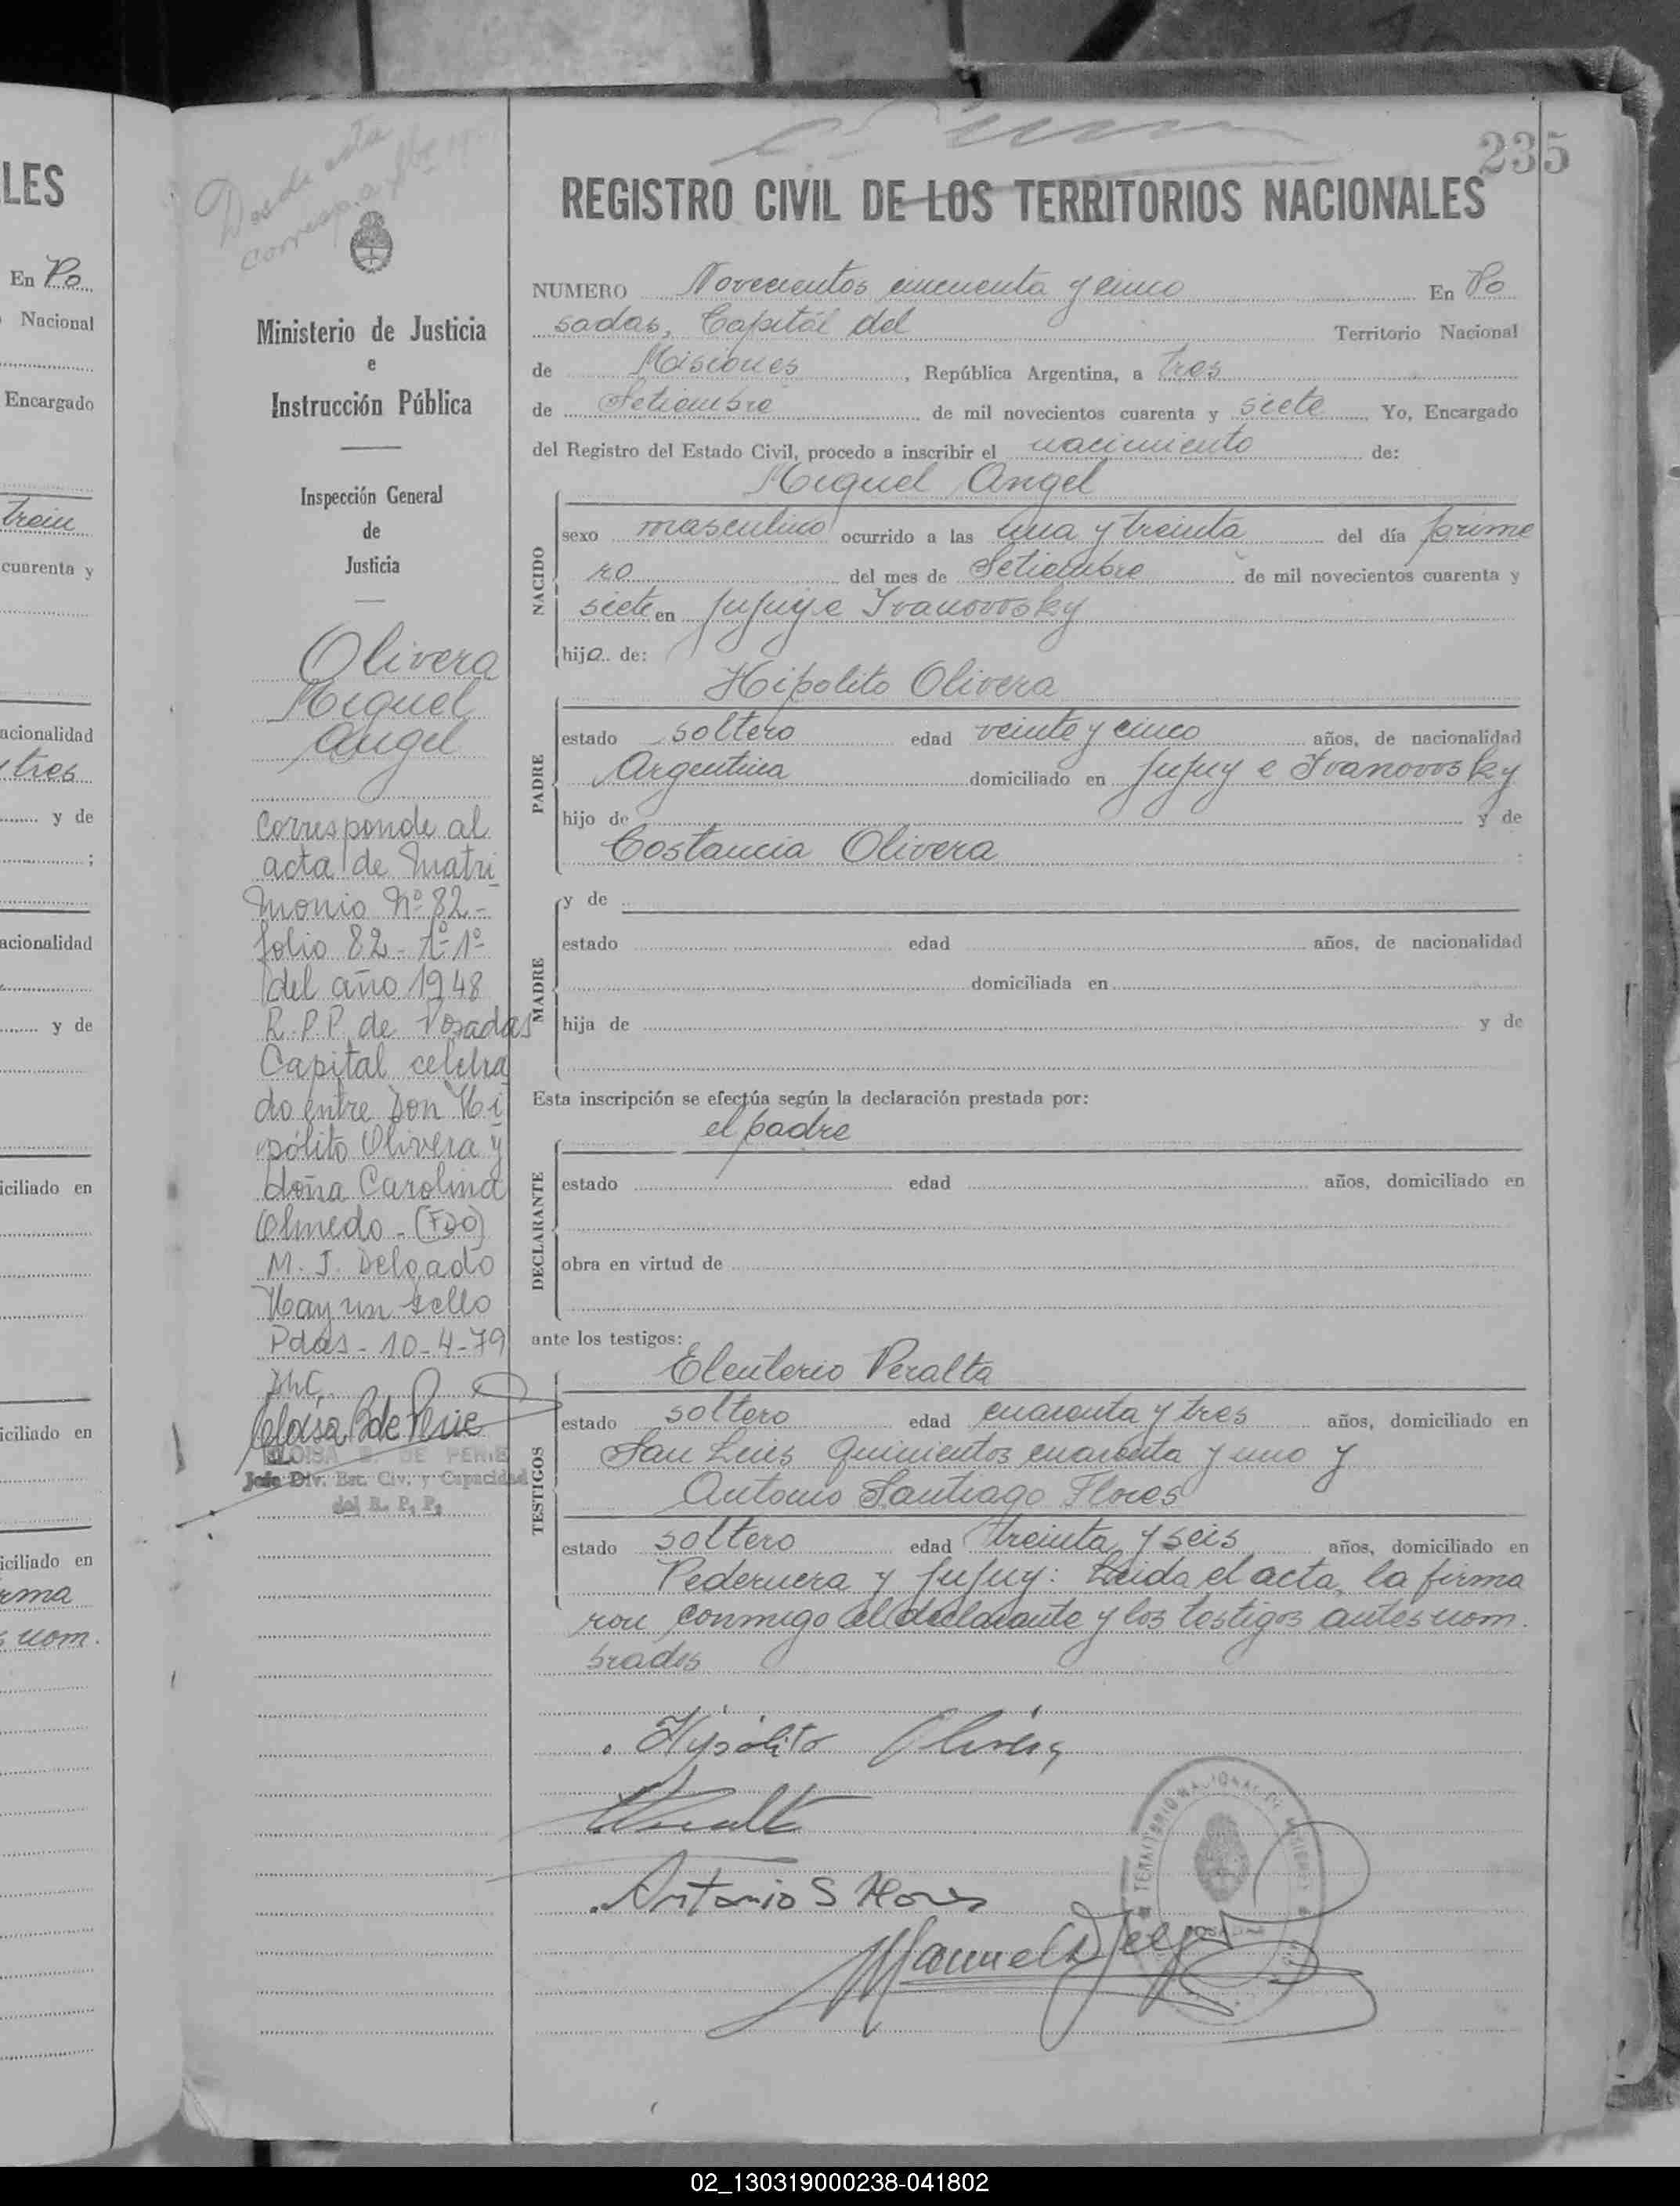 LES
En Po
Nacional
Encargado
trein
cuarenta y
acionalidad
tres
y de
;
acionalidad
y de
iciliado en
iciliado en
iciliado en
rma
nom.
Desde esta
corresp. a
235
REGISTRO CIVIL DE LOS TERRITORIOS NACIONALES
Ministerio de Justicia
e
Instrucción Pública
Inspección General
de
Justicia
Olivera
Miguel
Angel
Corresponde al
acta de Matri
monio Nº 82-
folio 82- tº 1º
del año 1948
R.P.P. de Posadas
Capital celebra
do entre Don Hi
pólito Olivera y
doña Carolina
Olmedo - (FDO)
M. J. Delgado
Hay un sello
Pdas - 10-4-79
ELOISA B. DE PERIE
Jefe Div. Est. Civ. y Capacidad
del R. P. P.
NUMERO Novecientos cincuenta y cinco En Po
sadas, Capitál del Territorio Nacional
de Misiones, República Argentina, a tres
de Setiembre de mil novecientos cuarenta y siete Yo, Encargado
del Registro del Estado Civil, procedo a inscribir el nacimiento de:
NACIDO
Miguel Angel
sexo masculino ocurrido a las una y treinta del día prime
ro del mes de Setiembre de mil novecientos cuarenta y
siete en Jujuy e Ivanovosky
hijo de:
PADRE
Hipolito Olivera
estado soltero edad veinte y cinco años, de nacionalidad
Argentina domiciliado en Jujuy e Ivanovosky
hijo de y de
Costancia Olivera
MADRE
y de
estado edad años, de nacionalidad
domiciliada en
hija de y de
Esta inscripción se efectúa según la declaración prestada por:
el padre
DECLARANTE
estado edad años, domiciliado en
obra en virtud de
ante los testigos:
TESTIGOS
Eleuterio Peralta
estado soltero edad cuarenta y tres años, domiciliado en
San Luis Quinientos cuarenta y uno y
Antonio Santiago Flores
estado soltero edad treinta y seis años, domiciliado en
Pedernera y Jujuy: Leida el acta, la firma
ron conmigo el declarante y los testigos antes nom.
brados
Hipólito Olivera
Antonio S Flores
Manuel J Delgado
TERRITORIO NACIONAL DE MISIONES
02_130319000238-041802